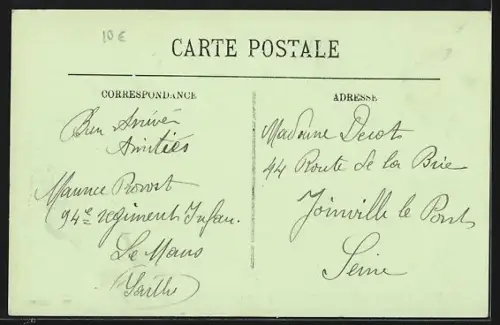 10 €
CARTE POSTALE
CORRESPONDANCE
Bien Arrivé
Amitiés
Maurice Provost
94e regiment Infan.
Le Mans
Sarthe
ADRESSE
Madame
44 Route de la Brie
Joinville le Pont
Seine